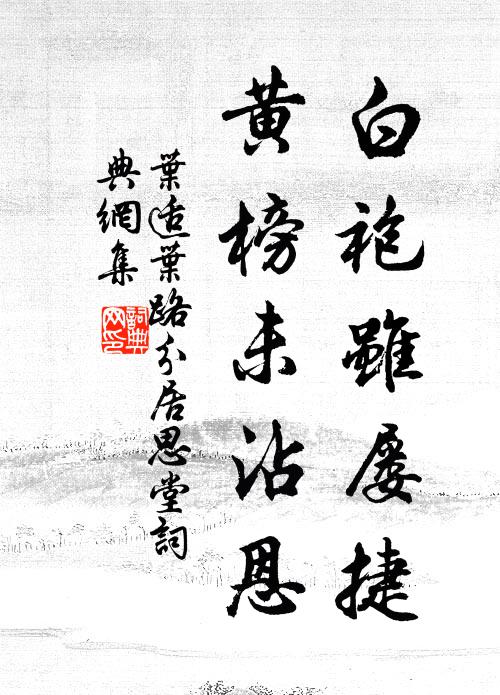 白袍雖屡捷
黄榜未沾恩
葉适葉路分居思堂詞
典網集
詞典网印